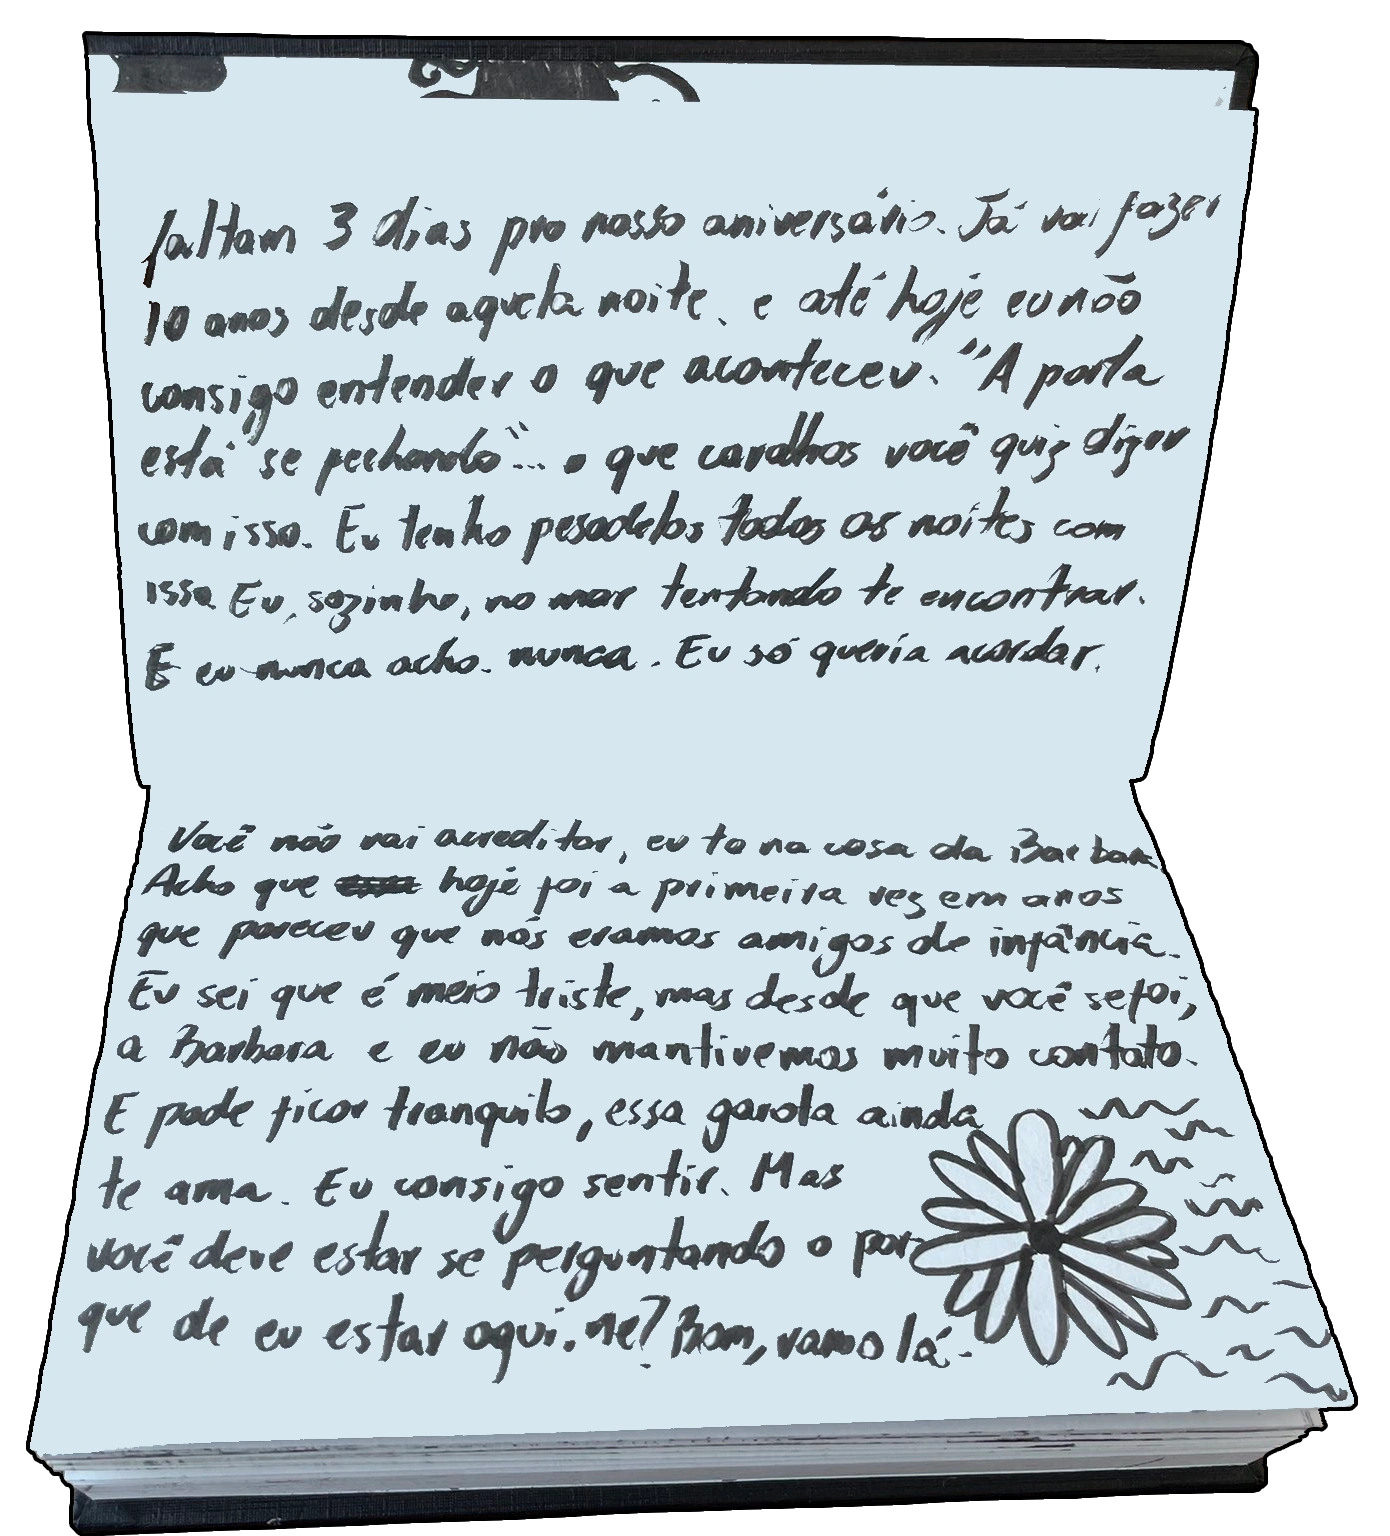 faltam 3 dias pro nosso aniversário. Já vai fazer
10 anos desde aquela noite. e até hoje eu não
consigo entender o que aconteceu. "A porta
está se fechando"... o que caralhos você quiz dizer
com isso. Eu tenho pesadelos todas as noites com
isso. Eu, sozinho, no mar tentando te encontrar.
E eu nunca acho. nunca. Eu só queria acordar.
Você não vai acreditar, eu to na casa da Barbara
Acho que hoje foi a primeira vez em anos
que pareceu que nós eramos amigos de infância.
Eu sei que é meio triste, mas desde que você se foi,
a Barbara e eu não mantivemos muito contato.
E pode ficar tranquilo, essa garota ainda
te ama. Eu consigo sentir. Mas
você deve estar se perguntando o por-
que de eu estar aqui. né? Bom, vamo lá.